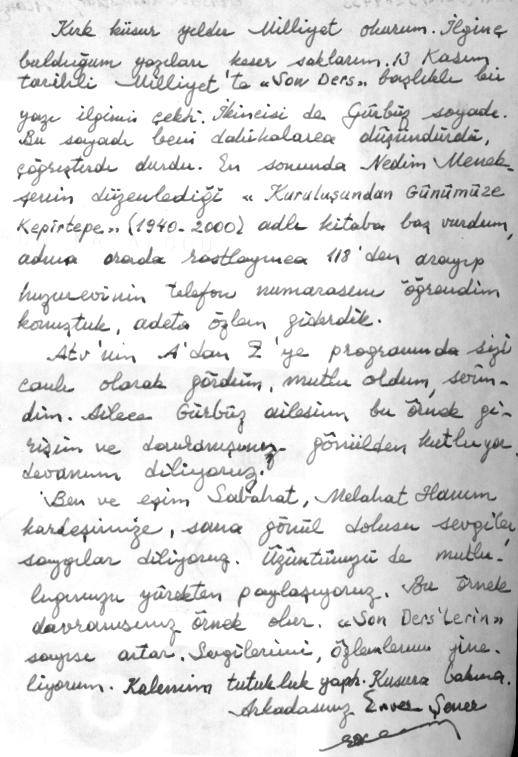 Kırk küsur yıldır Milliyet okurum. İlginç
bulduğum yazıları keser saklarım. 13 Kasım
tarihli Milliyet'te «Son Ders» başlıklı bir
yazı ilgimi çekti. İkincisi de Gürbüz soyadı.
Bu soyadı beni dakikalarca düşündürdü,
çağrıştırdı durdu. En sonunda Nedim Menek-
şenin düzenlediği « Kuruluşundan Günümüze
Kepirtepe» (1940-2000) adlı kitaba baş vurdum,
adına orada rastlayınca 118'den arayıp
huzurevinin telefon numarasını öğrendim
konuştuk, adeta özlem giderdik.
Atv'nin A'dan Z'ye programında sizi
canlı olarak gördüm, mutlu oldum, sevin-
dim. Ailece Gürbüz ailesinin bu örnek gi-
rişim ve davranışınızı gönülden kutluyor,
devamını diliyoruz.
Ben ve eşim Sabahat, Melahat Hanım
kardeşimize, sana gönül dolusu sevgiler,
saygılar diliyoruz. Üzüntünüzü de mutlu-
luğunuzu yürekten paylaşıyoruz. Bu örnek
davranışınız örnek olur. «Son Ders'lerin»
sayısı artar. Sevgilerimi, özlemlerimi yine-
liyorum. Kalemim tutukluk yaptı. Kusura bakma.
Arkadaşınız Enver Şener